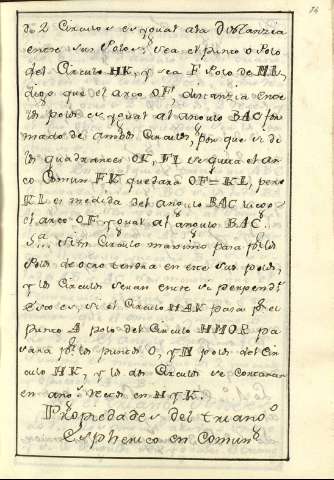 de 2 Circulos es ygual ala Distanzia
entre sus Polos: sea el punto O Polo
del Circulo HK, y sea F Polo de HL,
digo que el arco OF, distanzia entre
los polos es ygual al angulo BAC for
mado de ambos Circulos, por que si de
los quadrantes OK, FL se quita el ar
co Comun FK quedara OF=KL, pero
KL es medida del angulo BAC luego
el arco OF ygual al angulo BAC.
5.a Si un Circulo maximo pasa por los
Polos de otro tendra en este sus polos,
y los Circulos seran entre si perpend.s
Esto es, si el Circulo HAK pasa por el
punto A polo del Circulo HMOR pa
sara por los puntos O, y N polos del Cir
culo HK, y los dos Circulos se cortaran
en angulos rectos en H y K.
Propiedades del triang.o
Espherico en Comun